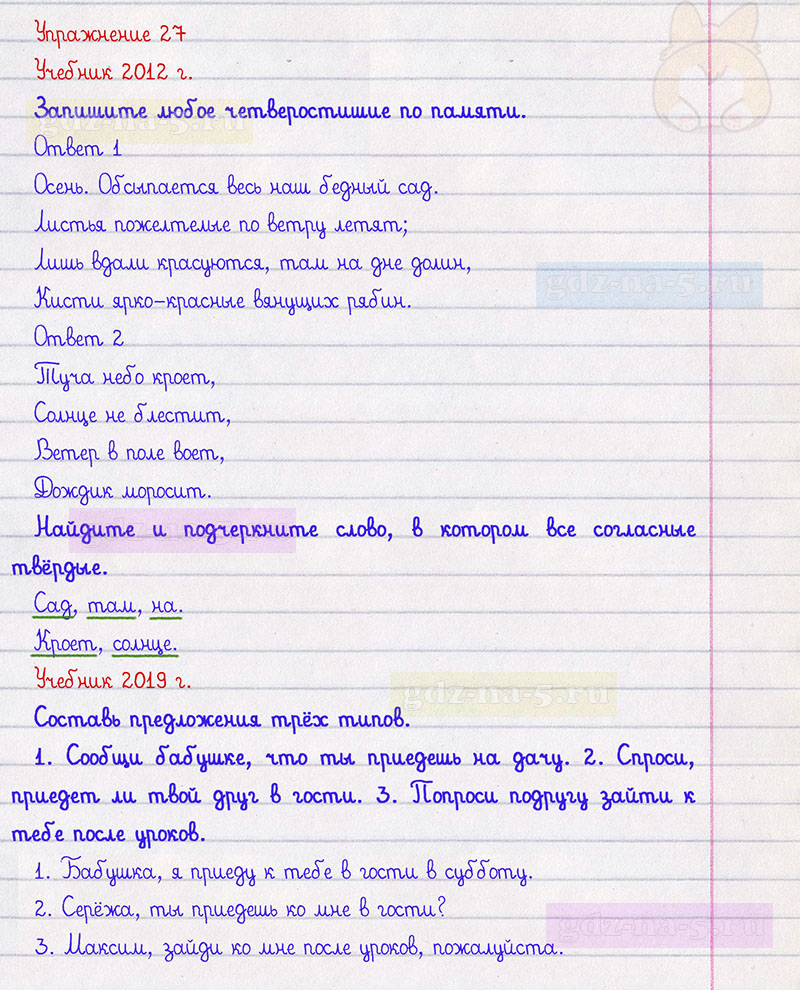 Упражнение 27
Учебник 2012 г.
Запишите любое четверостишие по памяти.
Ответ 1
Осень. Обсыпается весь наш бедный сад.
Листья пожелтелые по ветру летят;
Лишь вдали красуются, там на дне долин,
Кисти ярко-красные вянущих рябин.
Ответ 2
Туча небо кроет,
Солнце не блестит,
Ветер в поле воет,
Дождик моросит.
Найдите и подчеркните слово, в котором все согласные
твёрдые.
Сад, там, на.
Кроет, солнце.
Учебник 2019 г.
gdz-na-5.ru
Составь предложения трёх типов.
1. Сообщи бабушке, что ты приедешь на дачу. 2. Спроси,
приедет ли твой друг в гости. 3. Попроси подругу зайти к
тебе после уроков.
1. Бабушка, я приеду к тебе в гости в субботу.
2. Серёжа, ты приедешь ко мне в гости?
3. Максим, зайди ко мне после уроков, пожалуйста.
gdz-na-5.ru
gdz-na-5.ru
gdz-na-5.ru
gdz-na-5.ru